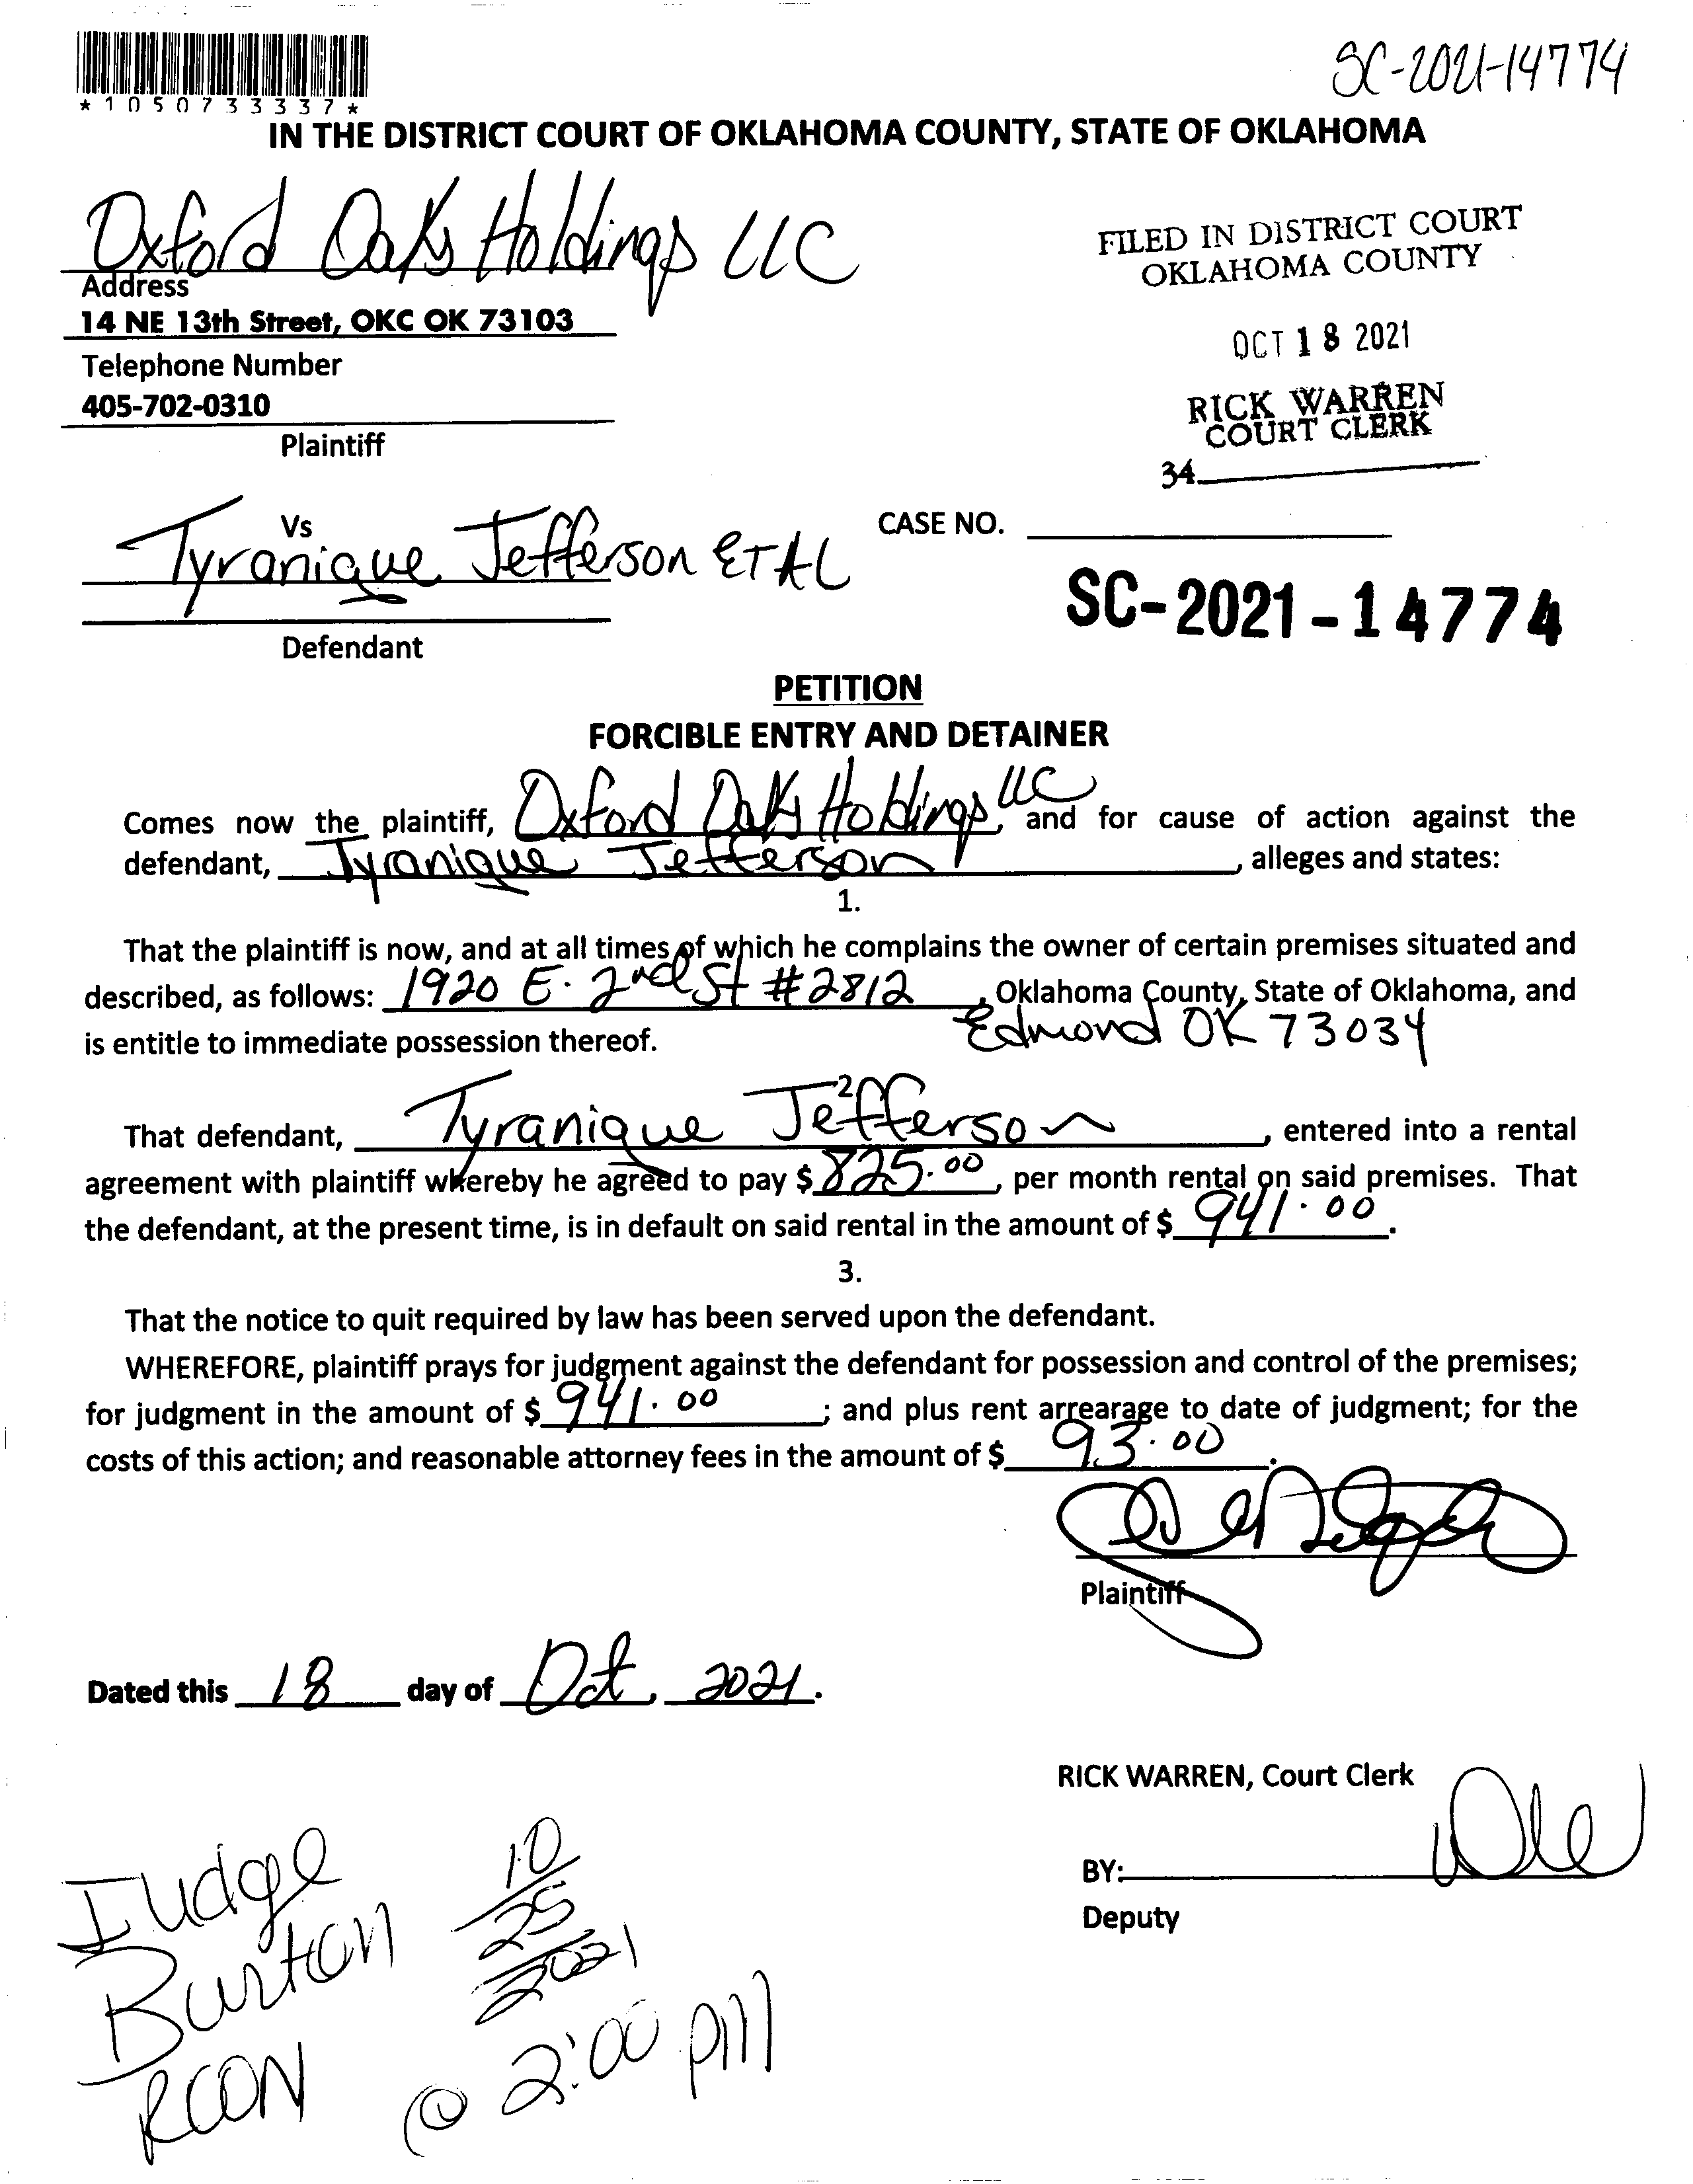 SC-2021-14774
*1050733337*
IN THE DISTRICT COURT OF OKLAHOMA COUNTY, STATE OF OKLAHOMA
Oxford Oaks Holdings LLC
Address
14 NE 13th Street, OKC OK 73103
Telephone Number
405-702-0310
Plaintiff
FILED IN DISTRICT COURT
OKLAHOMA COUNTY
OCT 18 2021
RICK WARREN
COURT CLERK
34
Vs
Tyranique Jefferson ETAL
Defendant
CASE NO.
SC-2021-14774
PETITION
FORCIBLE ENTRY AND DETAINER
Comes now the plaintiff, Oxford Oaks Holdings, LLC and for cause of action against the
defendant, Tyranique Jefferson, alleges and states:
1.
That the plaintiff is now, and at all times of which he complains the owner of certain premises situated and
described, as follows: 1920 E. 2nd St #2812, Oklahoma County, State of Oklahoma, and
is entitle to immediate possession thereof. Edmond OK 73034
2
That defendant, Tyranique Jefferson, entered into a rental
agreement with plaintiff whereby he agreed to pay $ 825.00, per month rental on said premises. That
the defendant, at the present time, is in default on said rental in the amount of $ 941.00.
3.
That the notice to quit required by law has been served upon the defendant.
WHEREFORE, plaintiff prays for judgment against the defendant for possession and control of the premises;
for judgment in the amount of $ 941.00; and plus rent arrearage to date of judgment; for the
costs of this action; and reasonable attorney fees in the amount of $ 93.00.
Plaintiff
Dated this 18 day of Oct, 2021.
RICK WARREN, Court Clerk
BY:
Deputy
Judge
Burton
10/25/2021
@ 2:00 pm